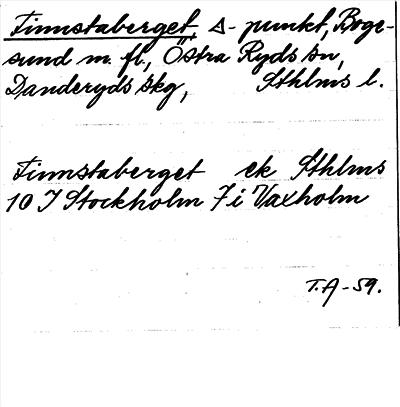 Finnstaberget, △-punkt, Boge-
sund m. fl., Östra Ryds sn,
Danderyds skg, Sthlms l.
Finnstaberget ek Sthlms
10 I Stockholm 7 i Vaxholm
T.A-59.